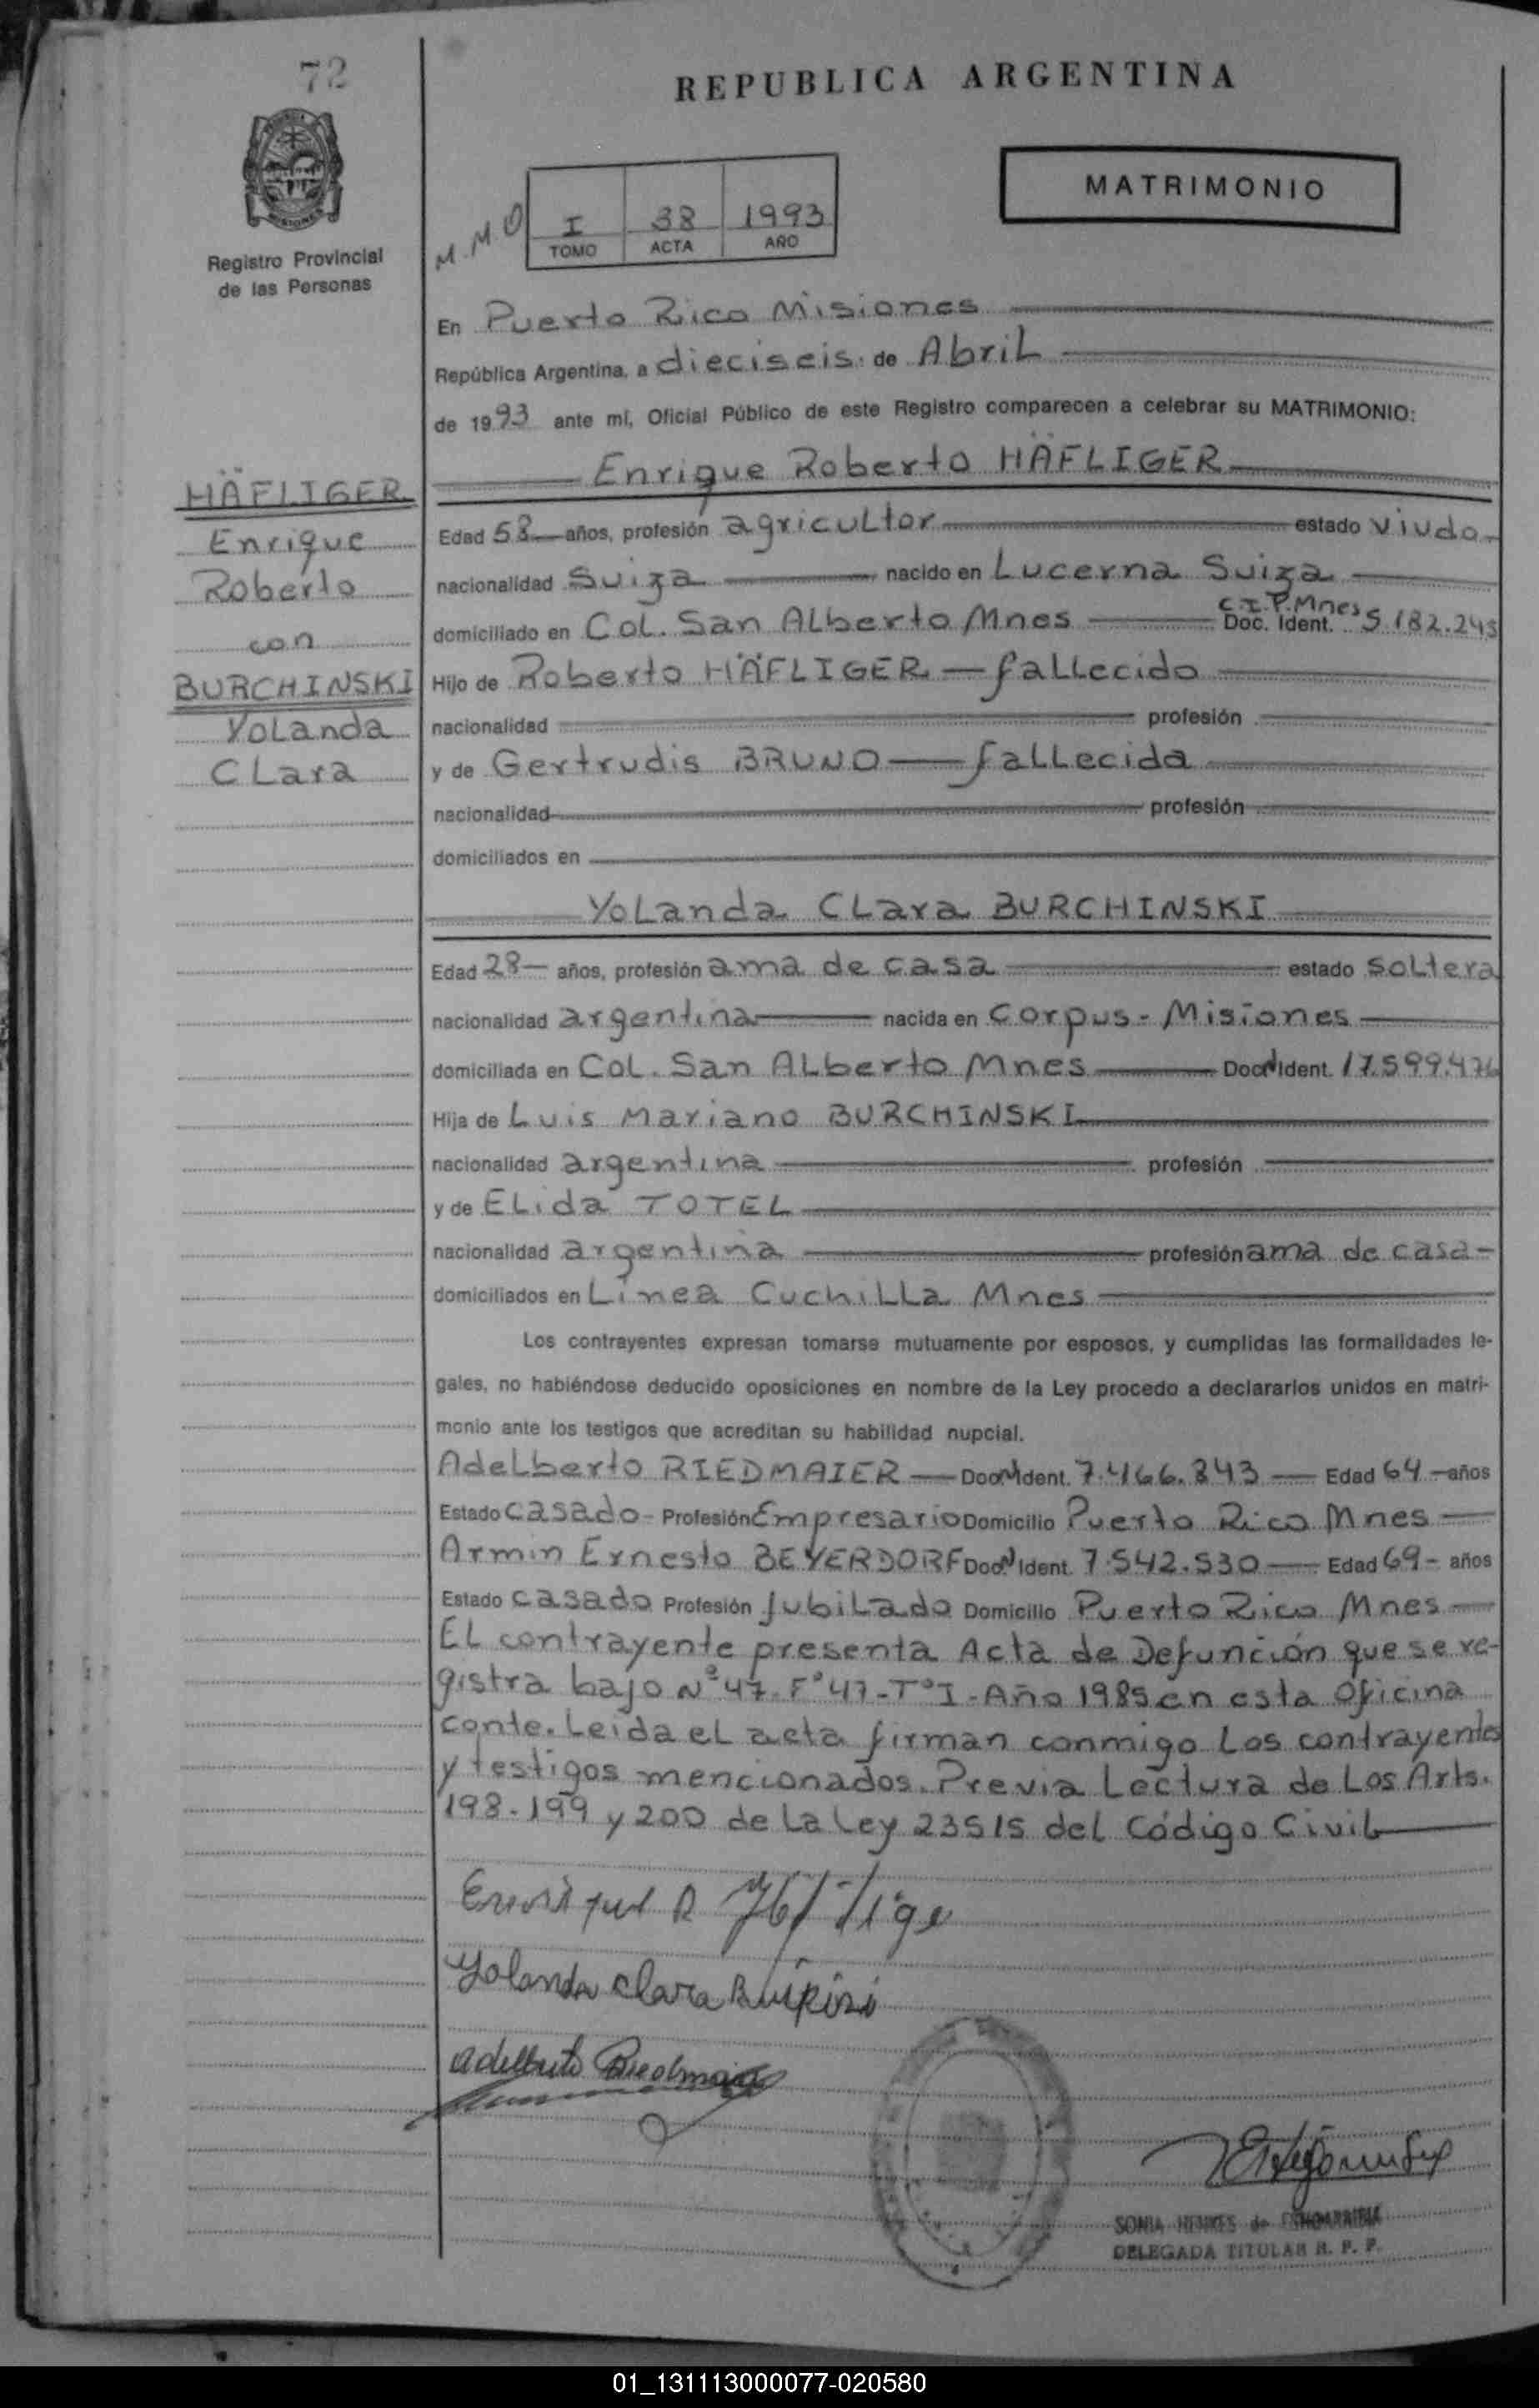 72
REPUBLICA ARGENTINA
MATRIMONIO
M.M.O
I 38 1993
TOMO ACTA AÑO
Registro Provincial
de las Personas
En Puerto Rico Misiones
República Argentina, a dieciseis de Abril
de 1993 ante mí, Oficial Público de este Registro comparecen a celebrar su MATRIMONIO:
Enrique Roberto HÄFLIGER
HÄFLIGER
Enrique
Roberto
con
BURCHINSKI
Yolanda
Clara
Edad 58 años, profesión agricultor estado viudo
nacionalidad Suiza nacido en Lucerna Suiza
domiciliado en Col. San Alberto Mnes C.I.P.Mnes Doc. Ident. 5182.243
Hijo de Roberto HÄFLIGER - fallecido
nacionalidad profesión
y de Gertrudis BRUNO - fallecida
nacionalidad profesión
domiciliados en
Yolanda Clara BURCHINSKI
Edad 28 años, profesión ama de casa estado soltera
nacionalidad argentina nacida en Corpus - Misiones
domiciliada en Col. San Alberto Mnes Doc. Ident. 17.599.476
Hija de Luis Mariano BURCHINSKI
nacionalidad argentina profesión
y de Elida TOTEL
nacionalidad argentina profesión ama de casa
domiciliados en Línea Cuchilla Mnes
Los contrayentes expresan tomarse mutuamente por esposos, y cumplidas las formalidades le-
gales, no habiéndose deducido oposiciones en nombre de la Ley procedo a declararlos unidos en matri-
monio ante los testigos que acreditan su habilidad nupcial.
Adelberto RIEDMAIER Doc. Ident. 7.466.843 Edad 64 años
Estado casado - Profesión Empresario Domicilio Puerto Rico Mnes
Armin Ernesto BEYERDORF Doc. Ident. 7.542.530 Edad 69 - años
Estado casado Profesión jubilado Domicilio Puerto Rico Mnes
El contrayente presenta Acta de Defunción que se re-
gistra bajo Nº 47 - Fº 47 - Tº I - Año 1985 en esta Oficina
conte. Leida el acta firman conmigo los contrayentes
y testigos mencionados. Previa Lectura de Los Arts.
198 - 199 y 200 de la Ley 23515 del Código Civil
Enrique R Häfliger
Yolanda Clara
Adelberto Riedmaier
SONIA HENKES de
DELEGADA TITULAR R. P. P.
01_131113000077-020580